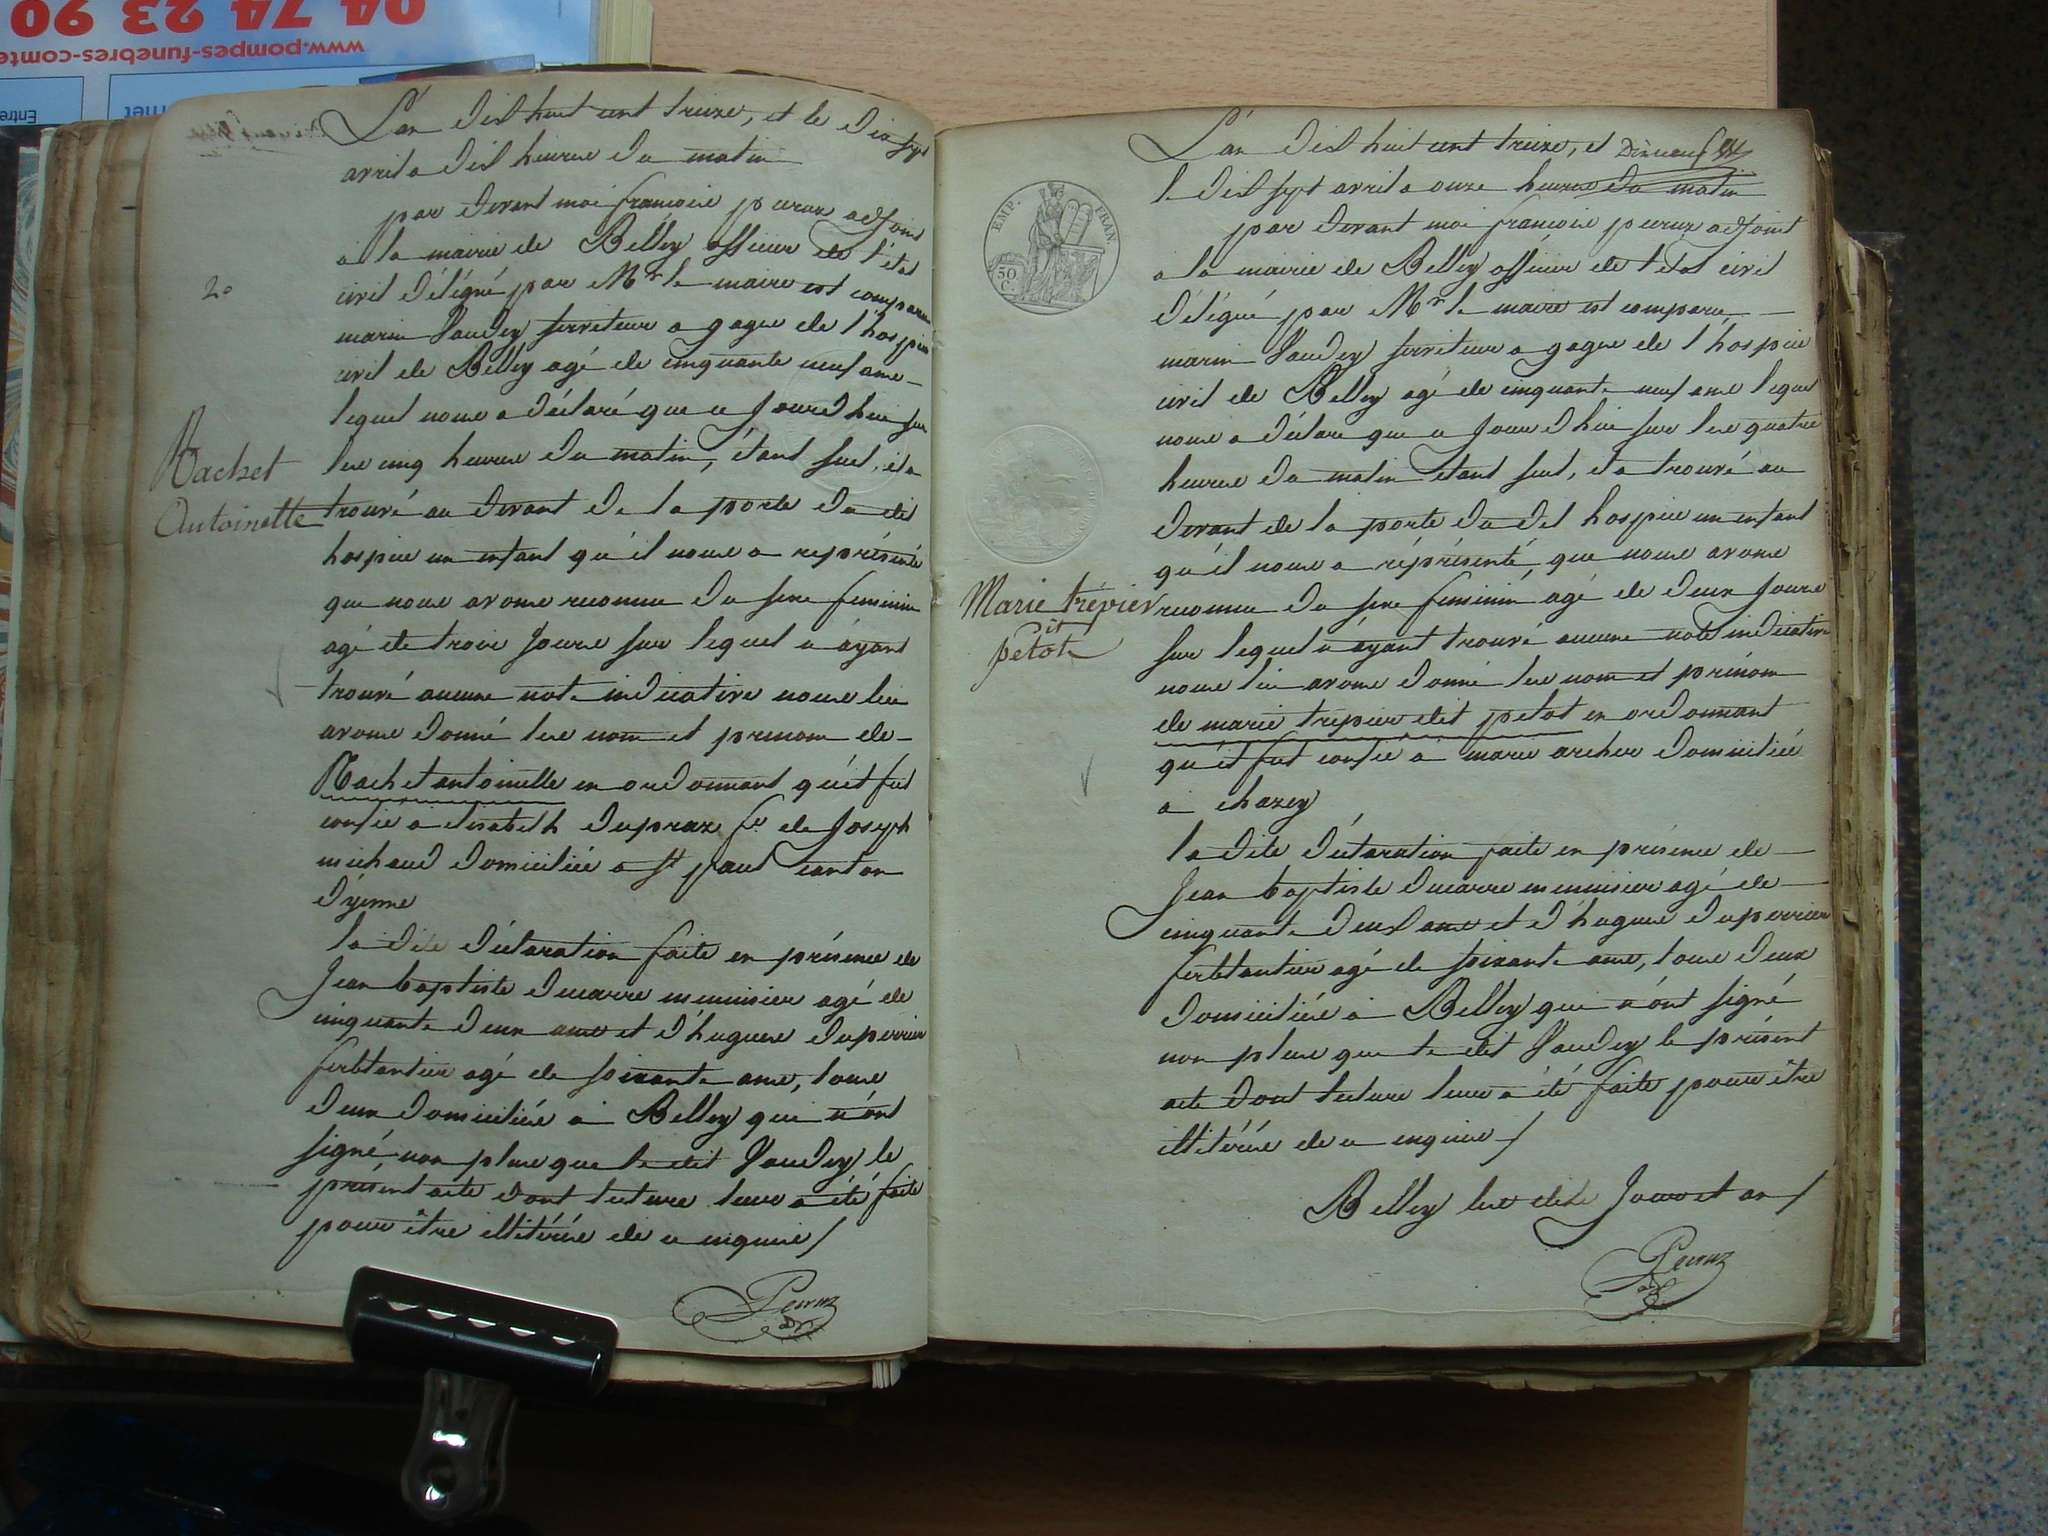 04 74 23 90
www.pompes-funebres-comte
Entre
rnet
L'an dix huit cent treize, et le dix sept
avril a dix heures du matin
par devant moi françois peeruz adjoint
a la mairie de Belley officier de l'état
civil délégué par Mr le maire est comparu
marin Vaudey serviteur a gages de l'hospice
civil de Belley agé de cinquante neuf ans
lequel nous a déclaré que ce jourd'hui sur
les cinq heures du matin, étant seul, il a
trouvé au devant de la porte du dit
hospice un enfant qu'il nous a représenté
que nous avons reconnu du sexe feminin
agé de trois jours sur lequel n'ayant
trouvé aucune note indicative nous lui
avons donné les nom et prenom de
Rachet antoinette en ordonnant qu'il fut
confié a elisabeth dupraz fe de Joseph
michaud domiciliée a St paul canton
d'yenne
la dite déclaration faite en présence de
Jean baptiste ducarre menuisier agé de
cinquante deux ans et d'hugues duperrier
ferblantier agé de soixante ans, tous
deux domiciliés a Belley qui n'ont
signé non plus que le dit Vaudey le
présent acte dont lecture leur a été faite
pour être illitérés de ce enquis /
2e
Rachet
Antoinette
L'an dix huit cent treize, et
le dix sept avril a onze heures du matin
par devant moi françois peeruz adjoint
a la mairie de Belley officier de l'état civil
délégué par Mr le maire est comparu
marin Vaudey serviteur a gages de l'hospice
civil de Belley agé de cinquante neuf ans lequel
nous a déclaré que ce jourd'hui sur les quatre
heures du matin étant seul, il a trouvé au
devant de la porte du dit hospice un enfant
qu'il nous a réprésenté, que nous avons
reconnu du sexe feminin agé de deux jours
sur lequel n'ayant trouvé aucune note indicative
nous lui avons donné les nom et prénom
de marie trepier dit petot en ordonnant
qu'il fut confié a marie archer domiciliée
a chazey
la dite déclaration faite en présence de
Jean baptiste ducarre menuisier agé de
cinquante deux ans et d'hugues duperrier
ferblantier agé de soixante ans, tous deux
domiciliés a Belley qui n'ont signé
non plus que le dit Vaudey le présent
acte dont lecture leur a été faite pour être
illitérés de ce enquis /
Belley les dits Jour et an /
EMP. FRAN.
50 C.
Marie trépier
dit
petot